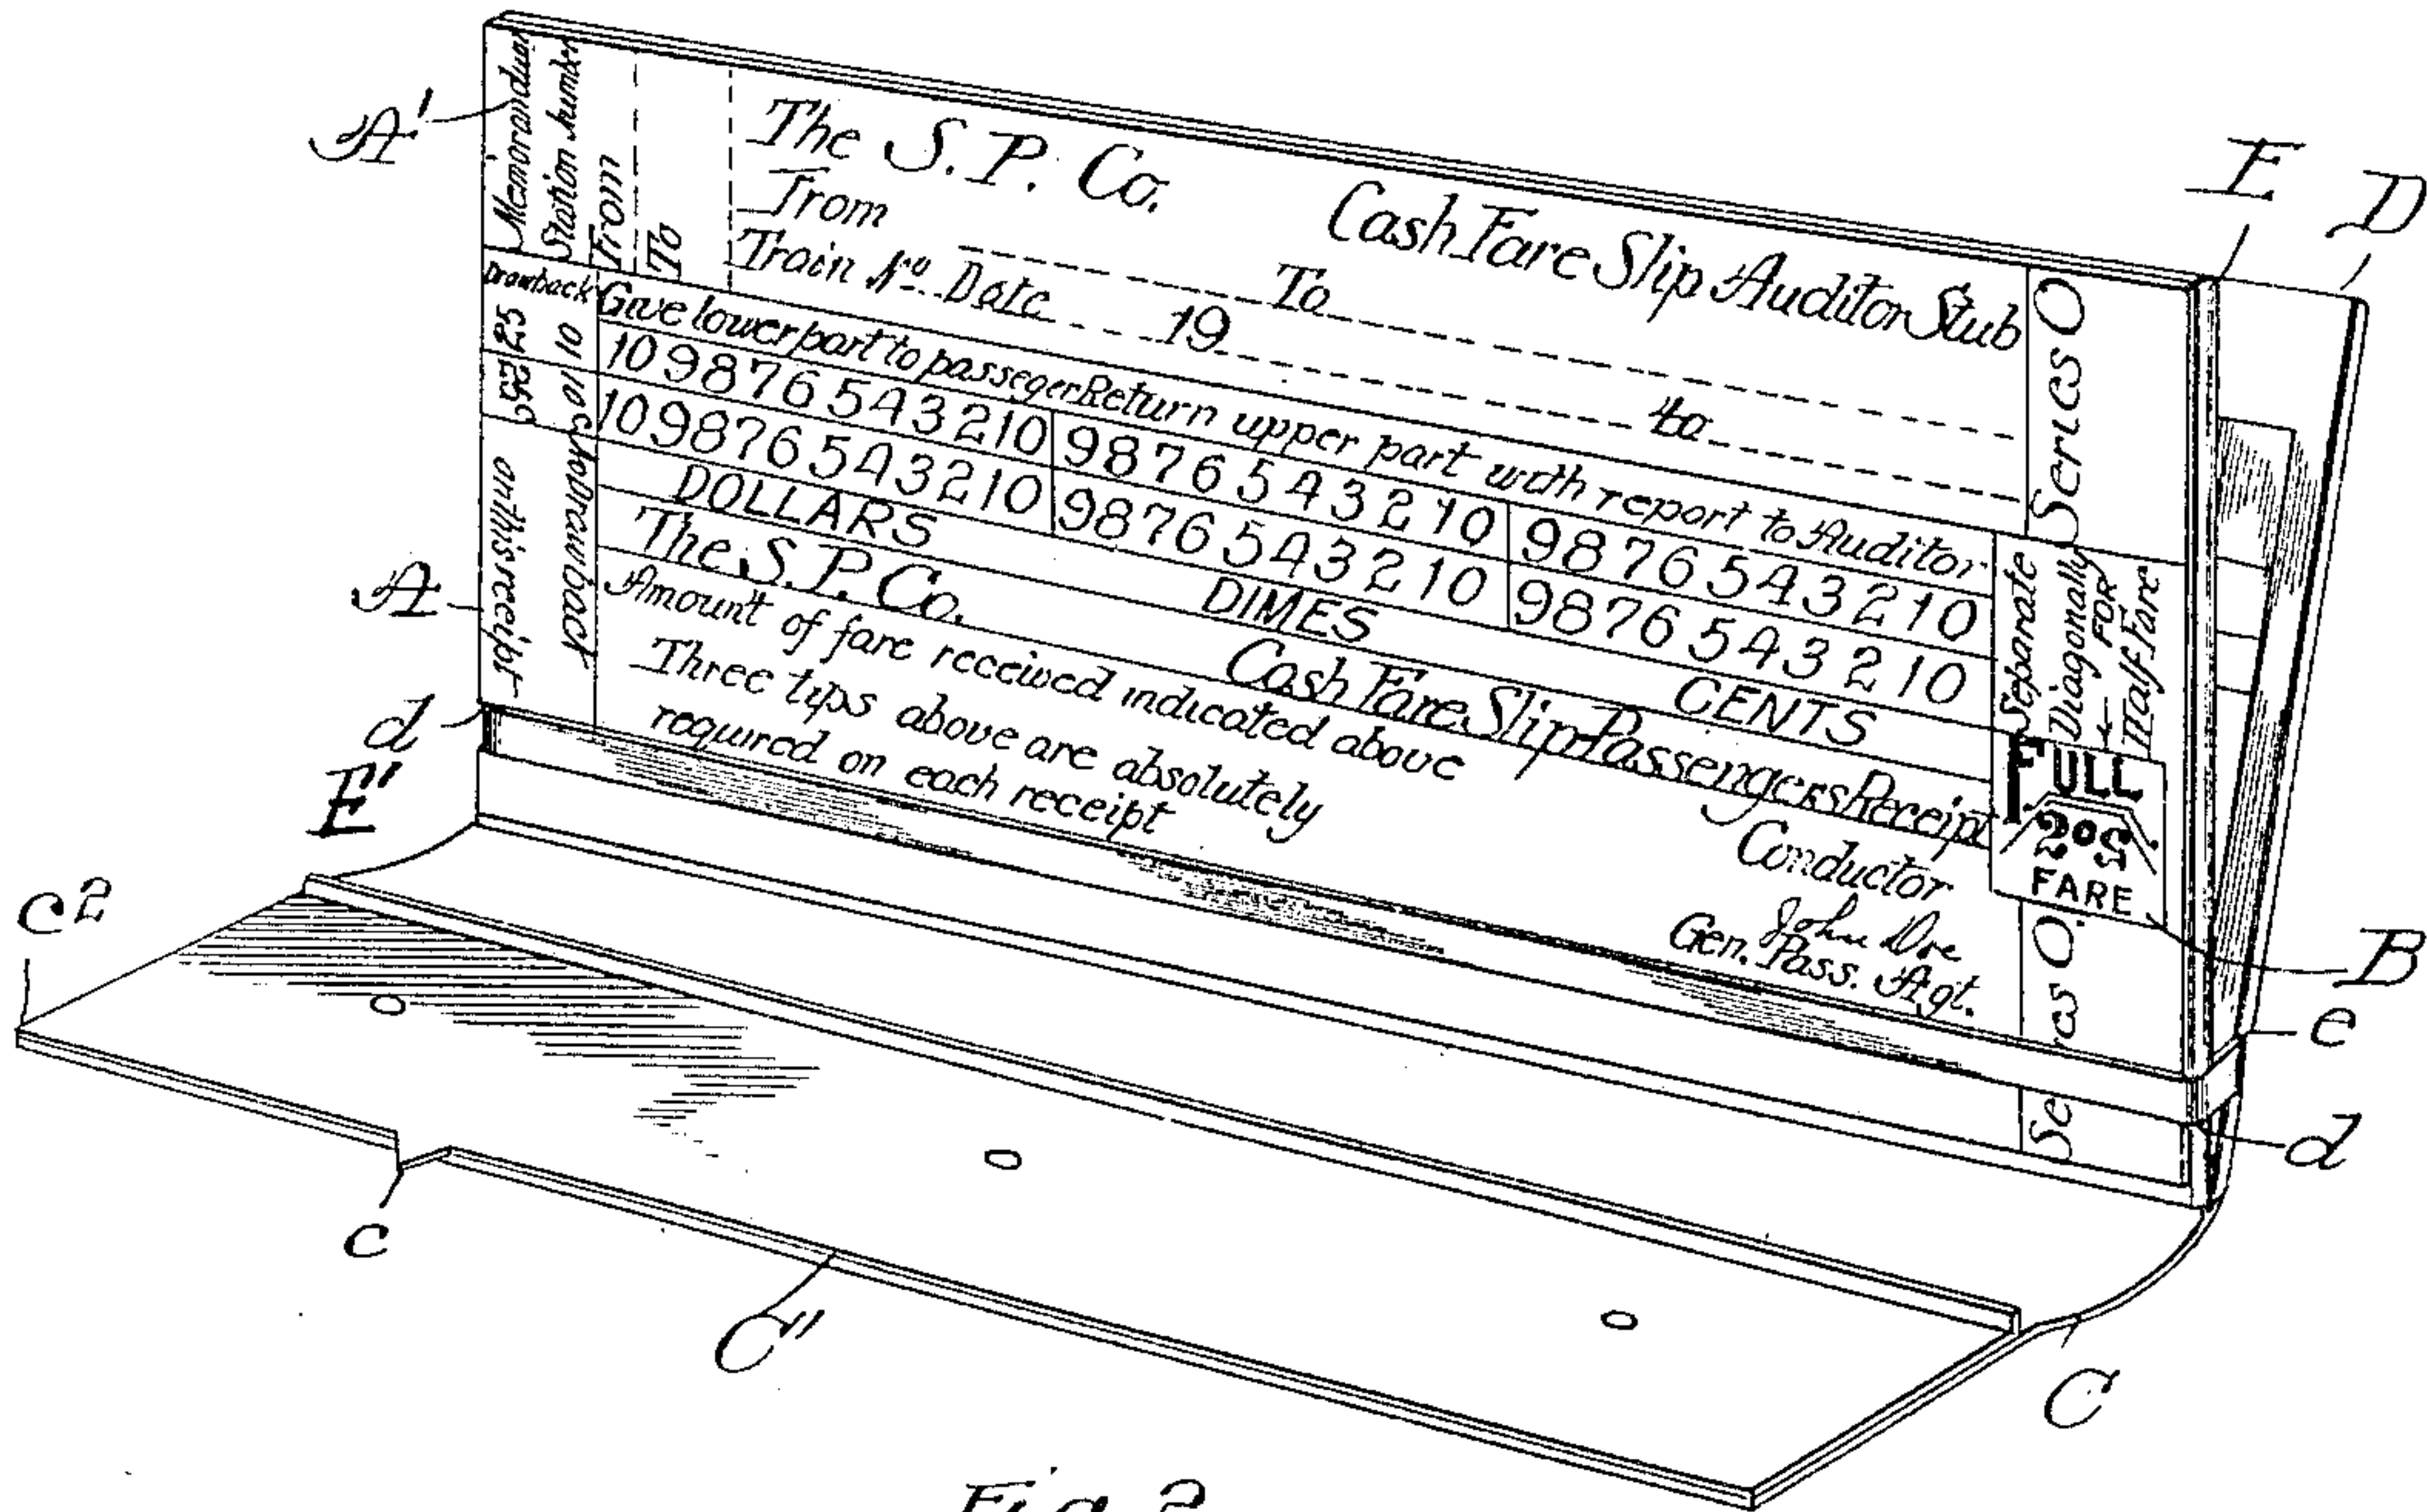 Memorandum
Station number
From
To
The S. P. Co. Cash Fare Slip Auditor Stub
From To
Train No. Date 19 to
Series O
Drawback
25 10
25c 10c
Give lower part to passeger Return upper part with report to Auditor
10 9 8 7 6 5 4 3 2 1 0 9 8 7 6 5 4 3 2 1 0 9 8 7 6 5 4 3 2 1 0
10 9 8 7 6 5 4 3 2 1 0 9 8 7 6 5 4 3 2 1 0 9 8 7 6 5 4 3 2 1 0
DOLLARS DIMES CENTS
No Drawback
on this receipt
The S. P. Co. Cash Fare Slip Passengers Receipt
Amount of fare received indicated above
Three tips above are absolutely
required on each receipt
Conductor
John Doe
Gen. Pass. Agt.
Separate
Diagonally
FOR
Half Fare
FULL
FARE
Series O.
Se
A'
A
d
E'
c2
c
C'
C
E
D
B
e
d
Fig. 2